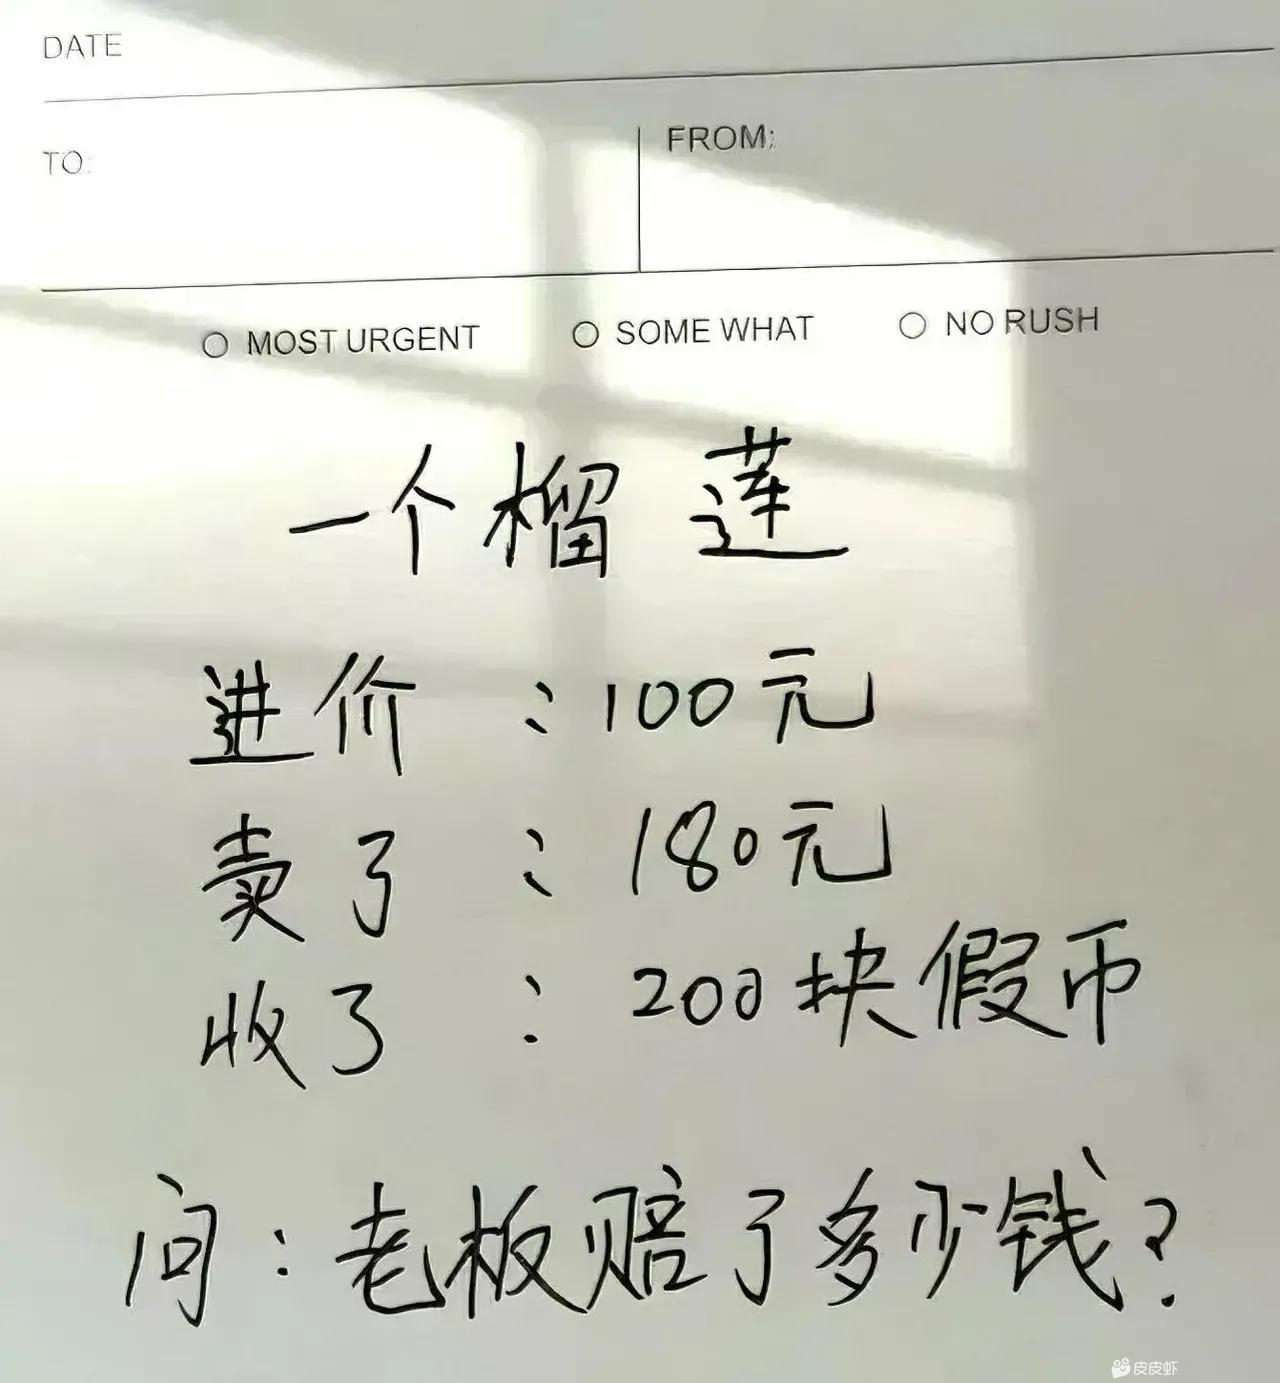 DATE
TO:
FROM:
MOST URGENT
SOME WHAT
NO RUSH
一个榴莲
进价：100元
卖了：180元
收了：200块假币
问：老板赔了多少钱？
皮皮虾